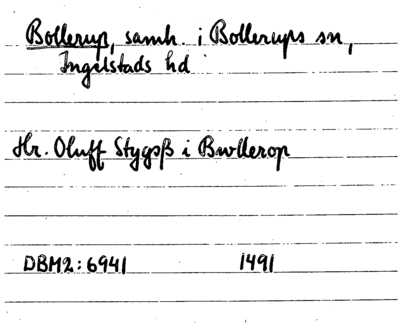 Bollerup, samh. i Bollerups sn,
Ingelstads hd
Hr. Oluff Stygsß i Bwllerop
DBM2:6941 1491